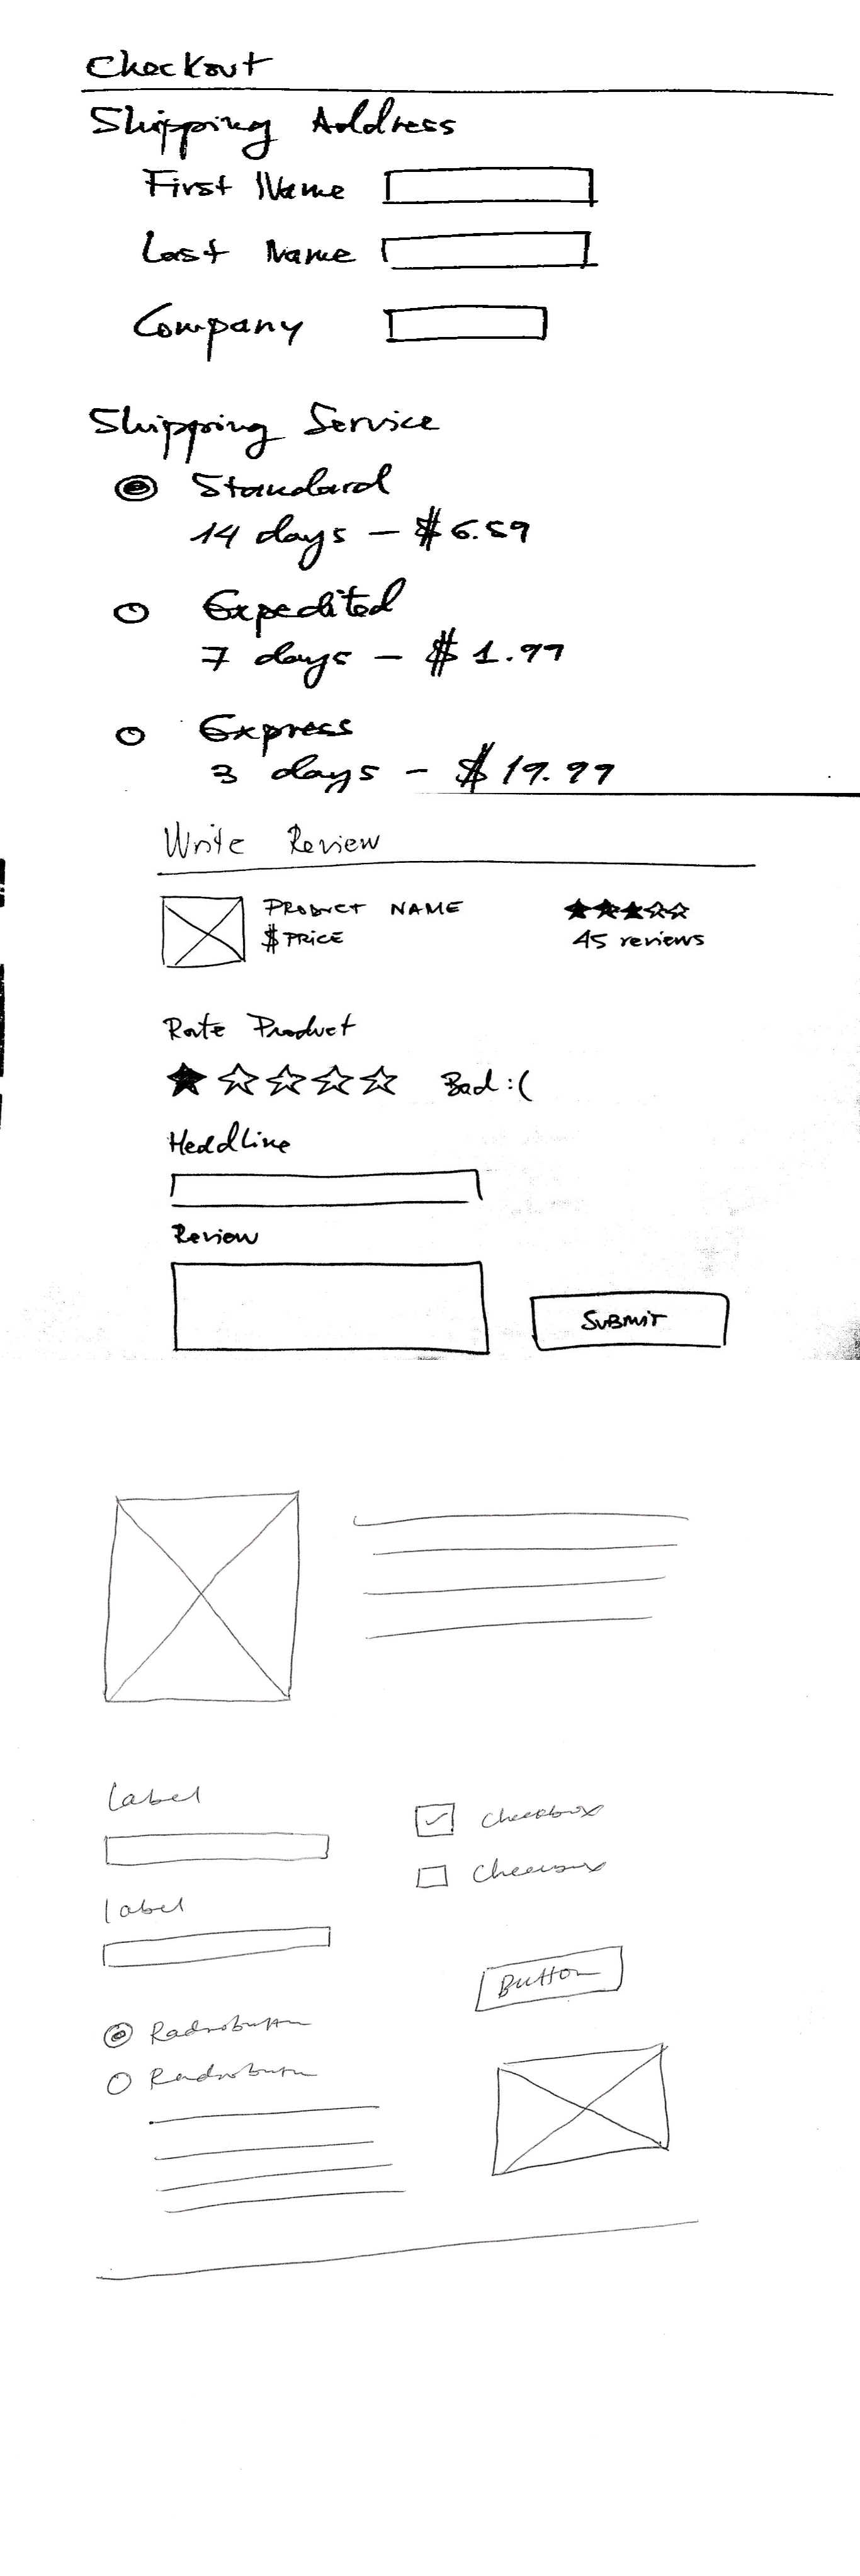 Checkout
Shipping Address
First Name
Last Name
Company
Shipping Service
Standard
14 days - $6.59
Expedited
7 days - $1.99
Express
3 days - $19.99
Write Review
PRODUCT NAME
$PRICE
45 reviews
Rate Product
Bad :(
Headline
Review
SUBMIT
Label
Checkbox
Checkbox
label
Button
Radiobutton
Radiobutton